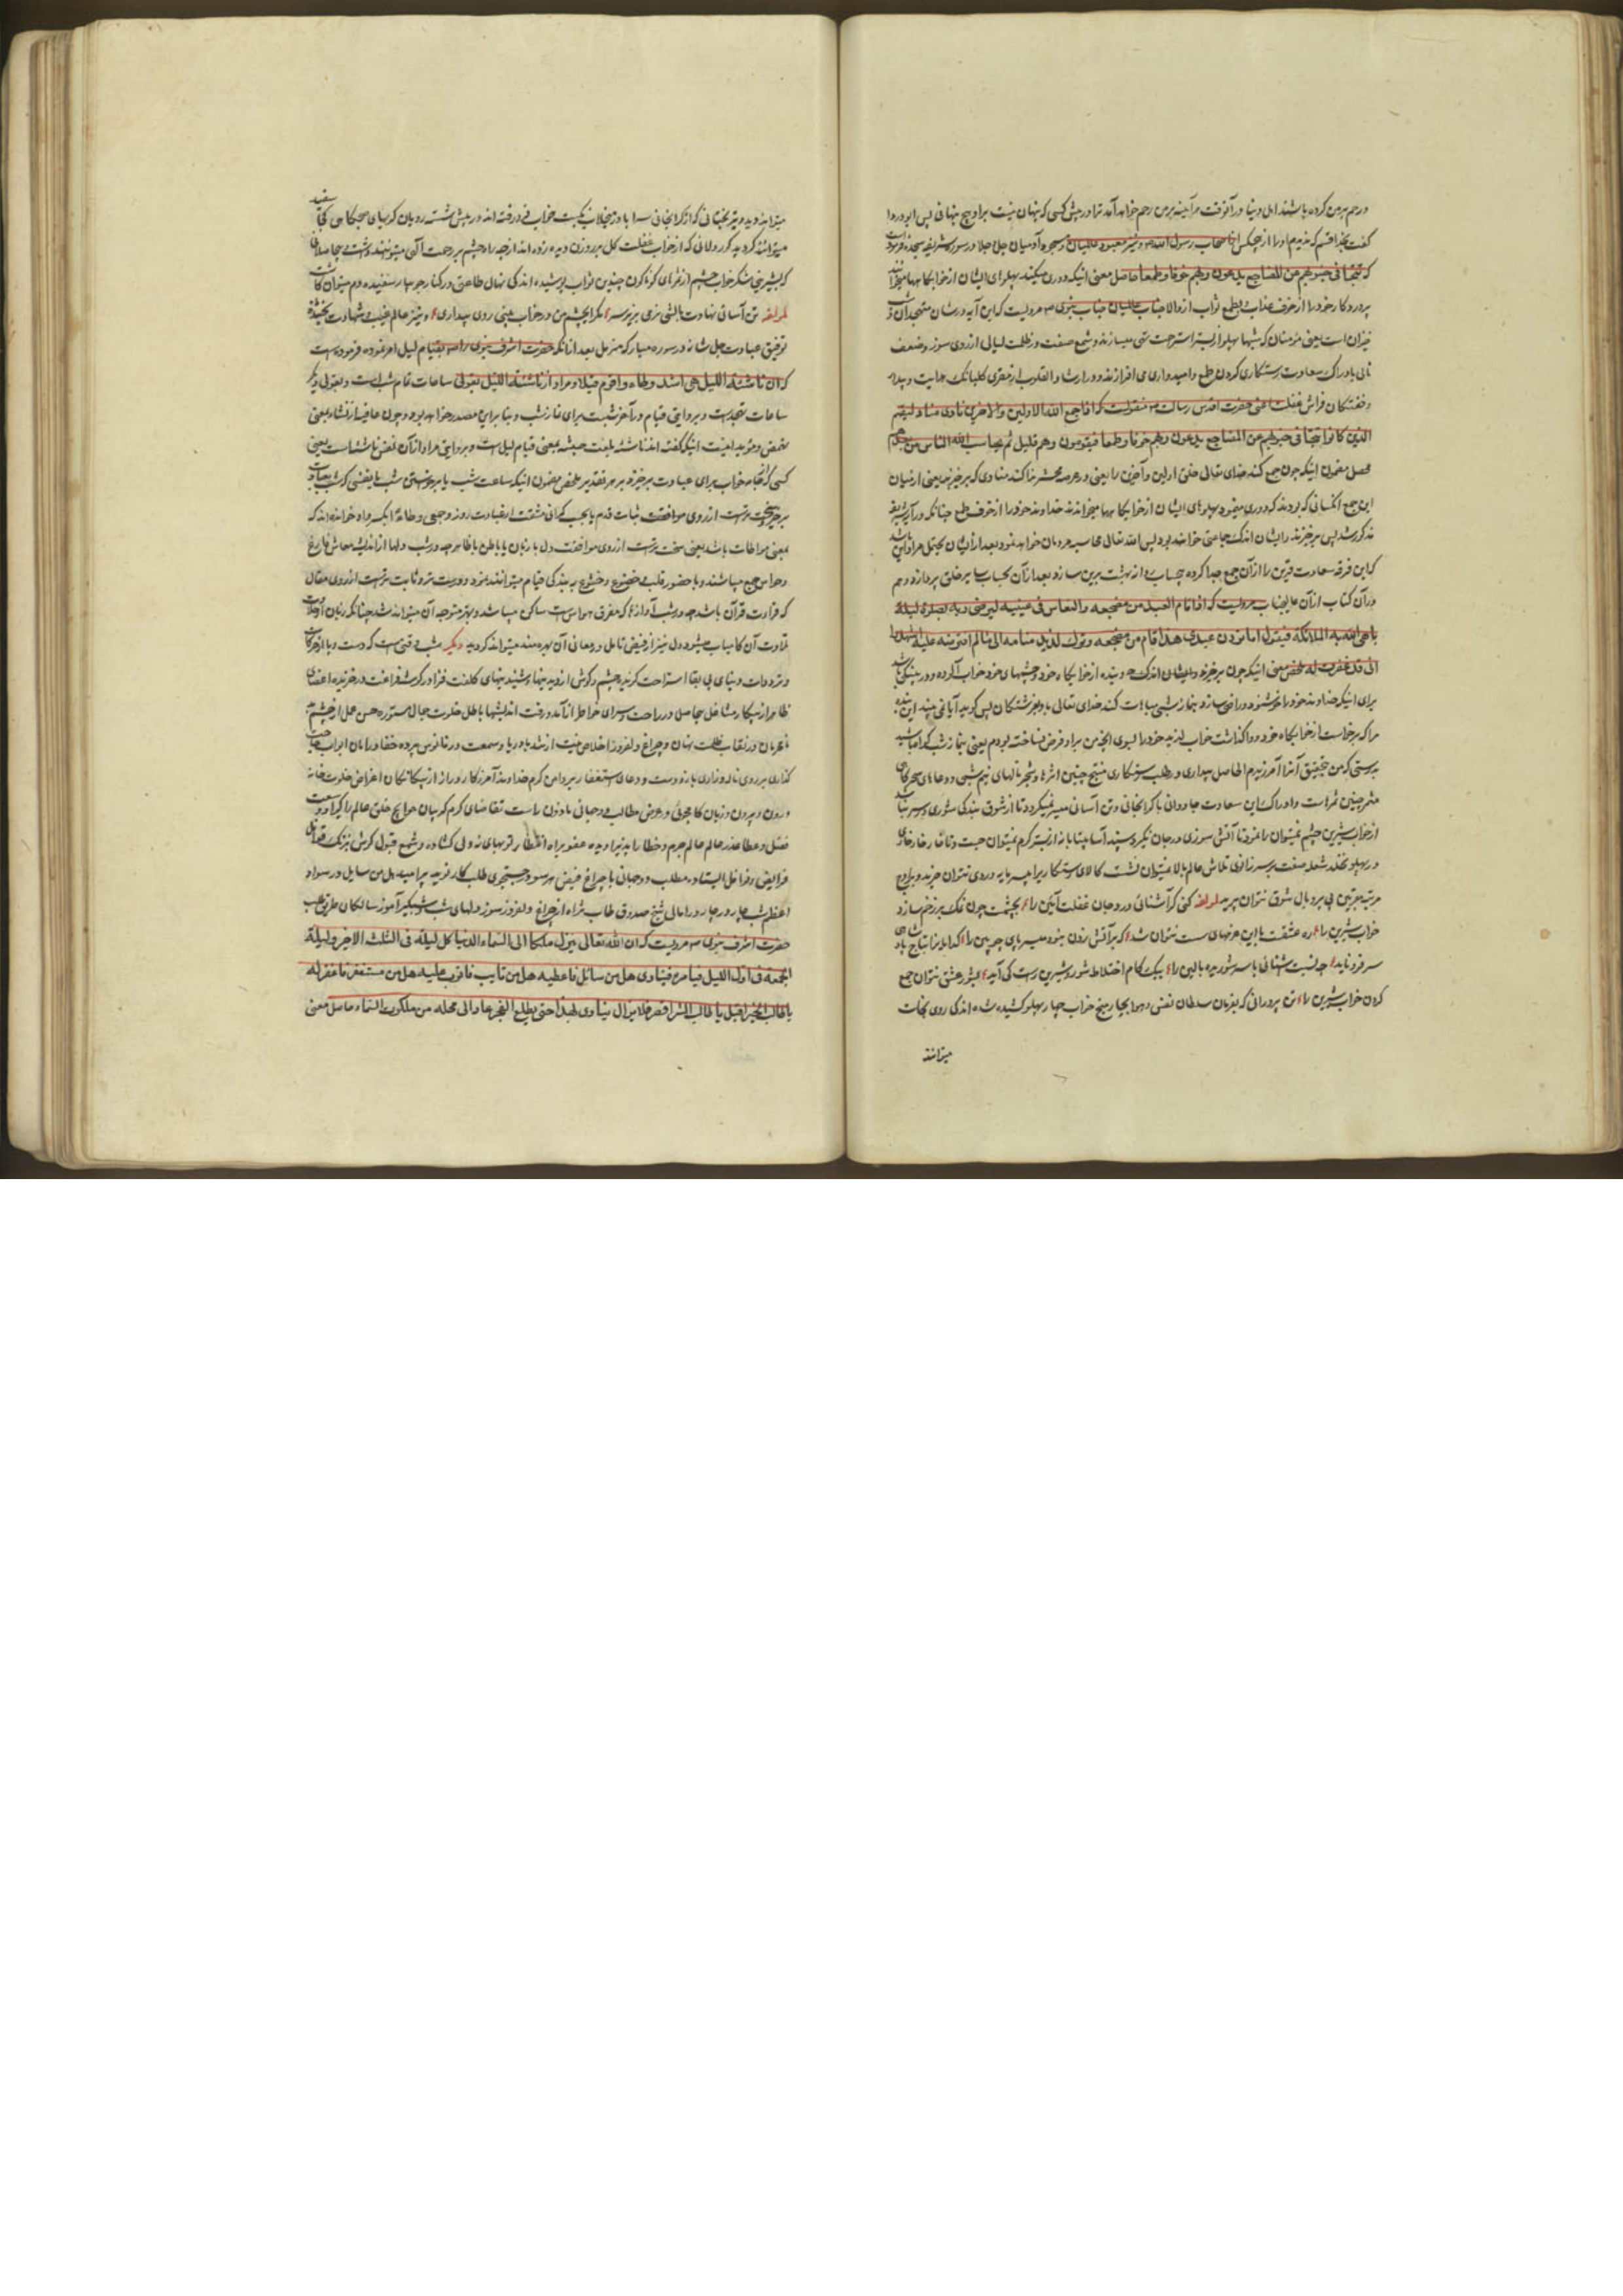 و رحم بر من کرده باشند اهل دنیا در آنوقت هرآینه بر من رحم خواهد آمد ترا در پیش کسی که پنهان نیست بر او هیچ پنهانی پس ابو دردا
گفت بخدا قسم که ندیدم اورا از هیچکس اصحاب رسول الله ص و نیز معبود عالمیان و مسجود آدمیان جل جلاله در سوره شریفه سجده فرموده است
که تتجافی جنوبهم عن المضاجع یدعون ربهم خوفا و طمعا حاصل معنی اینکه دوری میکند پهلوهای ایشان از خوابگاهها میخوانند
پروردگار خود را از خوف عذاب و طمع ثواب از والاجناب عالمیان جناب نبوی ص مرویست که این آیه در شان متهجدان و شب
خیزان است یعنی مؤمنان که شبها پهلو از بستر استراحت تهی میسازند و شمع صفت در ظلمت لیالی از روی سوز و ضعف
نالی بادراک سعادت رستگاری گردن طمع و امیدواری می افرازند و در ارشاد القلوب
و خفتگان فراش غفلت اعنی حضرت اقدس رسالت ص منقولست که اذا جمع الله الاولین والاخرین نادی مناد لیقم
الذین کانوا تتجافی جنوبهم عن المضاجع یدعون ربهم خوفا و طمعا فیقومون وهم قلیل ثم یحاسب الله الناس من بعدهم
محصل مضمون اینکه چون جمع کند خدای تعالی خلق اولین و آخرین را یعنی در عرصه محشر ندا کند منادی که برخیزند یعنی از میان
این جمع آنکسانی که بودند که دوری مینمود پهلوهای ایشان از خوابگاهها میخواندند خداوند خود را از خوف و طمع چنانکه در آیه شریفه
مذکور شد پس برخیزند و ایشان اندک جماعتی خواهند بود پس الله تعالی محاسبه مردمان خواهد نمود بعد از ایشان
که این فرقه سعادت قرین را از آن جمع جدا کرده بیحساب روانه بهشت برین سازد بعد از آن بحساب سایر خلق پردازد و هم
در آن کتاب از آن عالیجناب مرویست که اذا قام العبد من مضجعه والنعاس فی عینیه لیرضی ربه بصلوة لیله
باهی الله به الملائکة فیقول اما ترون عبدی هذا قام من مضجعه وترک لذیذ منامه الی مالم افترضه علیه اشهدوا
انی قد غفرت له ملخص معنی اینکه چون برخیزد بنده از خوابگاه خود و چشمهای خود خواب آلوده
برای اینکه خداوند خود را خوشنود و راضی سازد بنماز شبی مباهات کند خدای تعالی باو بفرشتگان پس گوید آیا نمی بینید این بنده
مرا که برخاست از خوابگاه خود و واگذاشت خواب لذیذ خود را بسوی آنچه من بر او فرض نساخته بودم یعنی نماز شب گواه باشید
بدرستی که من بتحقیق آنرا آمرزیدم الحاصل بیداری و طلب رستگاری منتج چنین اثرها و شجر نالهای نیم شبی و دعاهای سحرگاهی
مثمر چنین ثمرات است و ادراک این سعادت جاودانی با گرانجانی و تن آسانی میسر نمیگردد تا از شوق بندگی شوری در سر نباشد
از خواب شیرین چشم نمیتوان را نمود تا آتش سوزی در جان نگیرد سپند آسا بیتابانه از بستر گرم نمیتوان جست و تا خار خاری
در پهلو نخلد شعله صفت بر سر زانوی تلاش عالم بالا نمیتوان نشست کالای رستگاری را بی سرمایه دردی نتوان خرید و باوج
مرتبه قرب بی پر و بال شوق نتوان پرید لمؤلفه کنی گر آشنائی درد جان غفلت آئین را بچشمت چون نمک بر زخم سازد
خواب شیرین را ره عشقت با این عزمهای سست نتوان شد که بر آتش زدن نبود میسر پای چوبین را گدایانرا بتاج پادشاهی
سر فرو ناید چه نسبت شنائی با سر شوریده بالین را بیک کام اختلاط شور و شیرین راست کی آید بشور عشق نتوان جمع
کردن خواب شیرین را تن پرورانی که بفرمان سلطان نفس و هوا بچار میخ خواب چهار پهلو کشیده شده اند کی روی نجات
میتوانند
میتوانند دید و تیره بختانی که از گرانجانی خواب فرو رفته اند در پیش شسته رویان گریهای صبحگاهی کجا سفید
میتوانند گردید کوردلانی که از خواب غفلت گل بر روزن دیده زده اند از چه راه چشم بر رحمت الهی میتوانند داشت
لمؤلفه تن آسانی نهادت بالش نرمی بزیر سر مگر با چشم من در خواب بینی روی بیداری و نیز عالم غیب و شهادت بخشنده
توفیق عبادت جل شانه در سوره مبارکه مزمل بعد از آنکه حضرت اشرف نبوی را ص بقیام لیل امر نموده فرموده است
که ان ناشئة اللیل هی اشد وطاء واقوم قیلا و مراد از ناشئة اللیل بقولی ساعات تمام شب است و بقولی دیگر
ساعات تهجد است و بروایتی قیام در آخر شب است برای نماز شب
کسی که از جامه خواب برای عبادت برخیزد و بر هر تقدیر ملخص مضمون اینکه ساعت شب یا برخاستن شب یا نفسی که شب بعبادت
برخیزد سخت تر است از روی موافقت ثبات قدم یا بحسب گرانی و مشقت از عبادت روز و جمعی وطاءً بکسر واو خوانده اند که
بمعنی مواطات باشد یعنی سخت تر است از روی موافقت دل با زبان یا باطن با ظاهر چه در شب دلها از اندیشه معاش فارغ
و حواس جمع میباشند و با حضور قلب و خضوع و خشوع به بندگی قیام میتوانند نمود و درست تر و ثابت تر است از روی مقال
که قراءت قرآن باشد چه در شب آوازها که مفرق حواس است ساکن میباشد و بهتر متوجه آن میتوانند شد چنانکه زبان از حلاوت
تلاوت آن کامیاب میشود دل نیز از فیض تامل در معانی آن بهره مند میتواند گردید دیگر شب وقتی است که دست و پا از حرکات
و ترددات دنیای بی بقا استراحت گزیند چشم و گوش از دیدنیها و شنیدنیهای کلفت فزا در گوشه فراغت در خزیده اعضای
ظاهر از پیکار مشاغل بیحاصل در راحت و سرای خواطر از آمد و رفت اندیشها باطل خلوت جمال مستوره حسن عمل از چشم
نامحرمان در نقاب ظلمت نهان و چراغ دلفروز اخلاص نیت از تندباد ریا و سمعت در فانوس پرده خفا در امان ابواب حاجت
گذاری بر روی ناله و زاری باز و دست دعای استغفار بر دامن کرم خداوند آمرزگار دراز از بیگانگان اغراض خلوت خانه
درون و بیرون و زبان کام جوئی در عرض مطالب دوجهانی ماذون راست تقاضای کرم کریمان حوایج خلق عالم را
فضل و عطا عذر عالم عالم جرم و خطا را پذیرا دیده عفو براه انتظار توبهای زدولی گشاده و شمع قبول گوش بزنگ قوافل
فرایض و نوافل ایستاده مطلب دوجهانی با چراغ فیض هر سو در جستجوی طلب کار نوید پر امید هل من سایل در سواد
اعظم شب جا بر در جا بر در امالی شیخ صدوق طاب ثراه از چراغ دلفروز سوز دلهای شب و شبگیر آموز سالکان طریق طلب
حضرت اشرف نبوی ص مرویست که ان الله تعالی ینزل ملکا الی السماء الدنیا کل لیلة فی الثلث الاخیر ولیلة
الجمعة فی اول اللیل فیامره فینادی هل من سائل فاعطیه هل من تایب فاتوب علیه هل من مستغفر فاغفر له
یا طالب الخیر اقبل یا طالب الشر اقصر فلا یزال ینادی بهذا حتی یطلع الفجر عاد الی محله من ملکوت السماء حاصل معنی